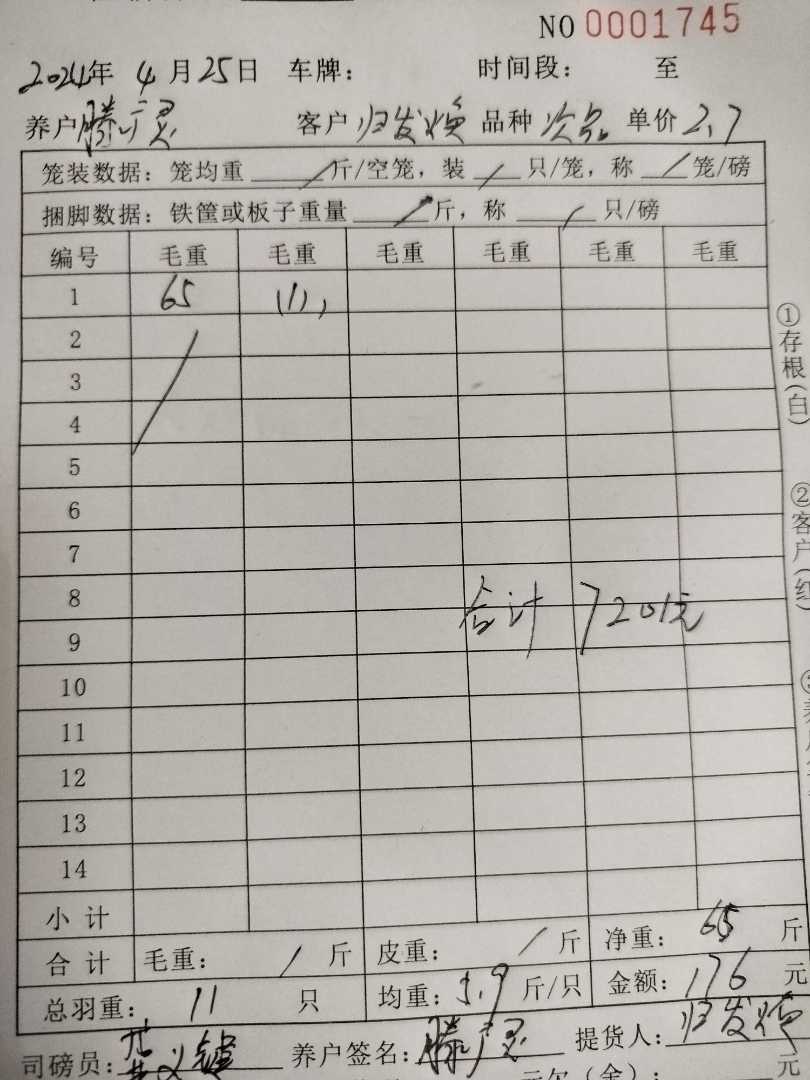 NO 0001745
2024年 4月25日 车牌： 时间段： 至
养户 滕广灵 客户 归发焕 品种 次品 单价 2.7
笼装数据：笼均重 / 斤/空笼，装 / 只/笼，称 / 笼/磅
捆脚数据：铁筐或板子重量 / 斤，称 / 只/磅
编号 毛重 毛重 毛重 毛重 毛重 毛重
1 65 (11)
2
3
4
5
6
7
8
合计 7201元
9
10
11
12
13
14
小计
合计 毛重： / 斤 皮重： / 斤 净重： 65 斤
总羽重： 11 只 均重： 5.9 斤/只 金额： 176 元
司磅员： 养户签名： 滕广灵 提货人： 归发焕
元欠（余）： 元
①存根(白)
②客户(红)
③养